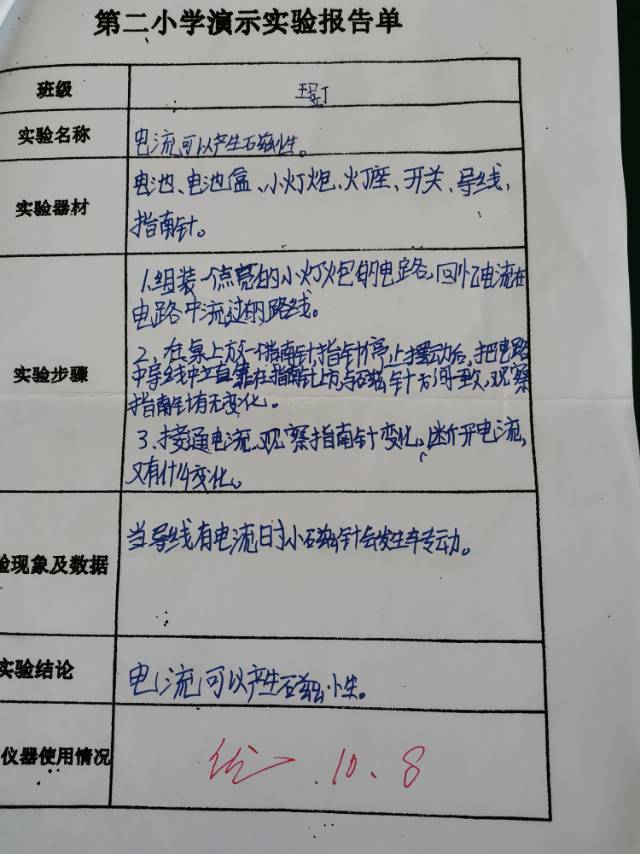 第二小学演示实验报告单
班级
实验名称 电流可以产生磁性。
实验器材 电池、电池盒、小灯炮、灯座、开关、导线、
指南针。
实验步骤
1.组装一个点亮的小灯炮的电路,回忆电流在
电路中流过的路线。
2、在桌上放一个指南针,指针停止摆动后,把电路
中导线中立直靠在指南针上方与磁针方向一致,观察
指南针有无变化。
3、接通电流、观察指南针变化。断开电流,
又有什么变化。
验现象及数据 当导线有电流时小磁针会发生转动。
实验结论 电流可以产生磁性。
仪器使用情况 优 10.8